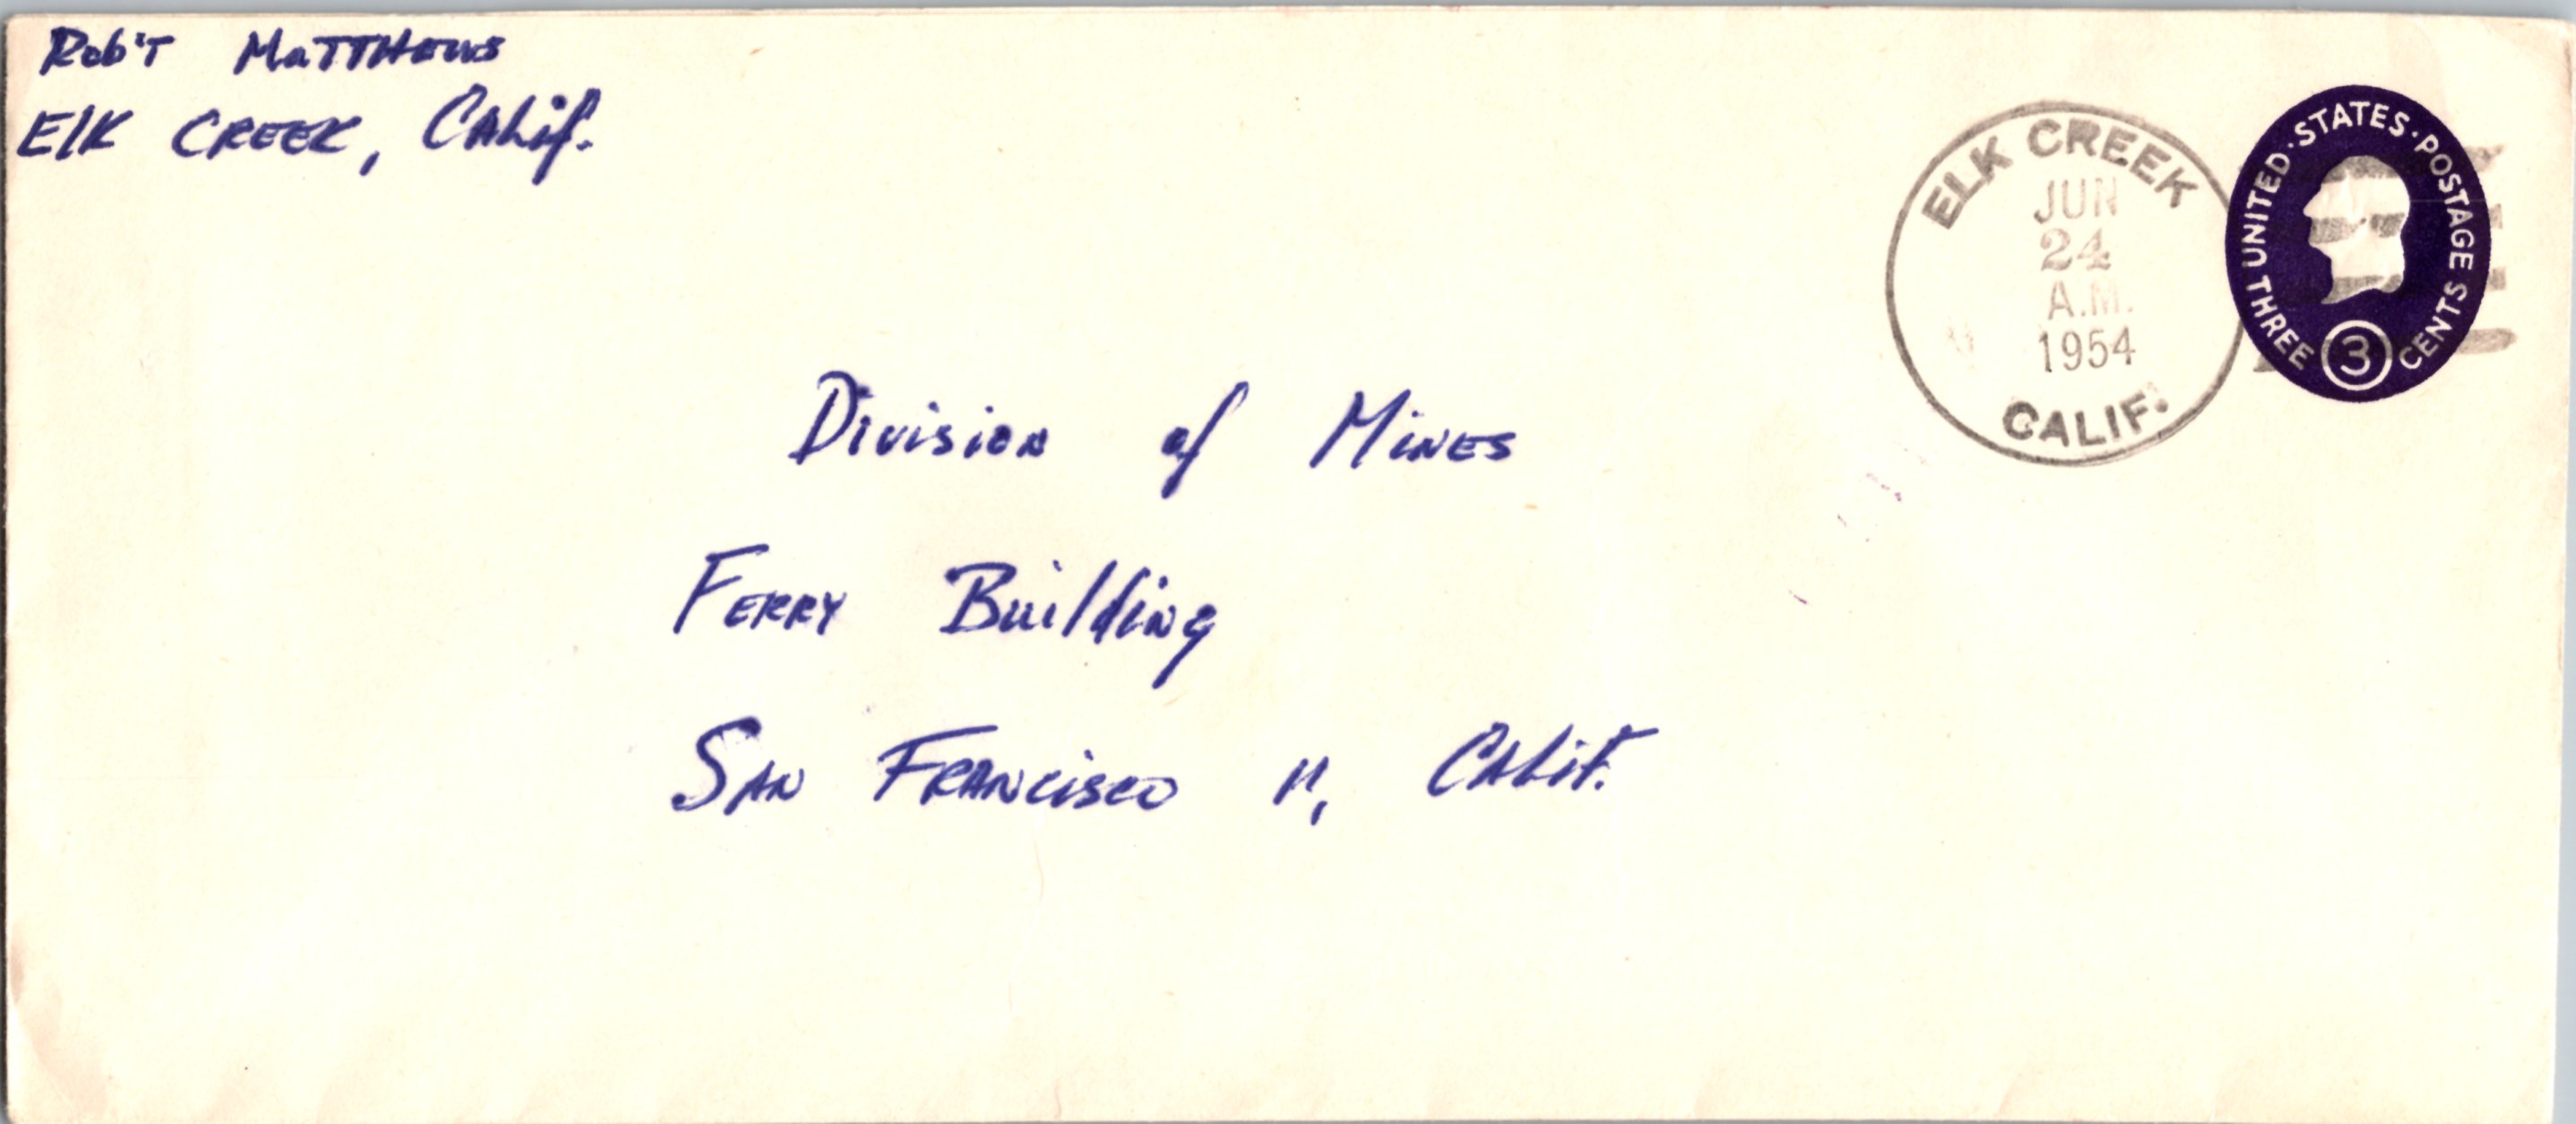 Rob't Matthews
Elk Creek, Calif.
ELK CREEK
JUN
24
A.M.
1954
CALIF.
UNITED·STATES·POSTAGE
THREE 3 CENTS
Division of Mines
Ferry Building
San Francisco 11, Calif.